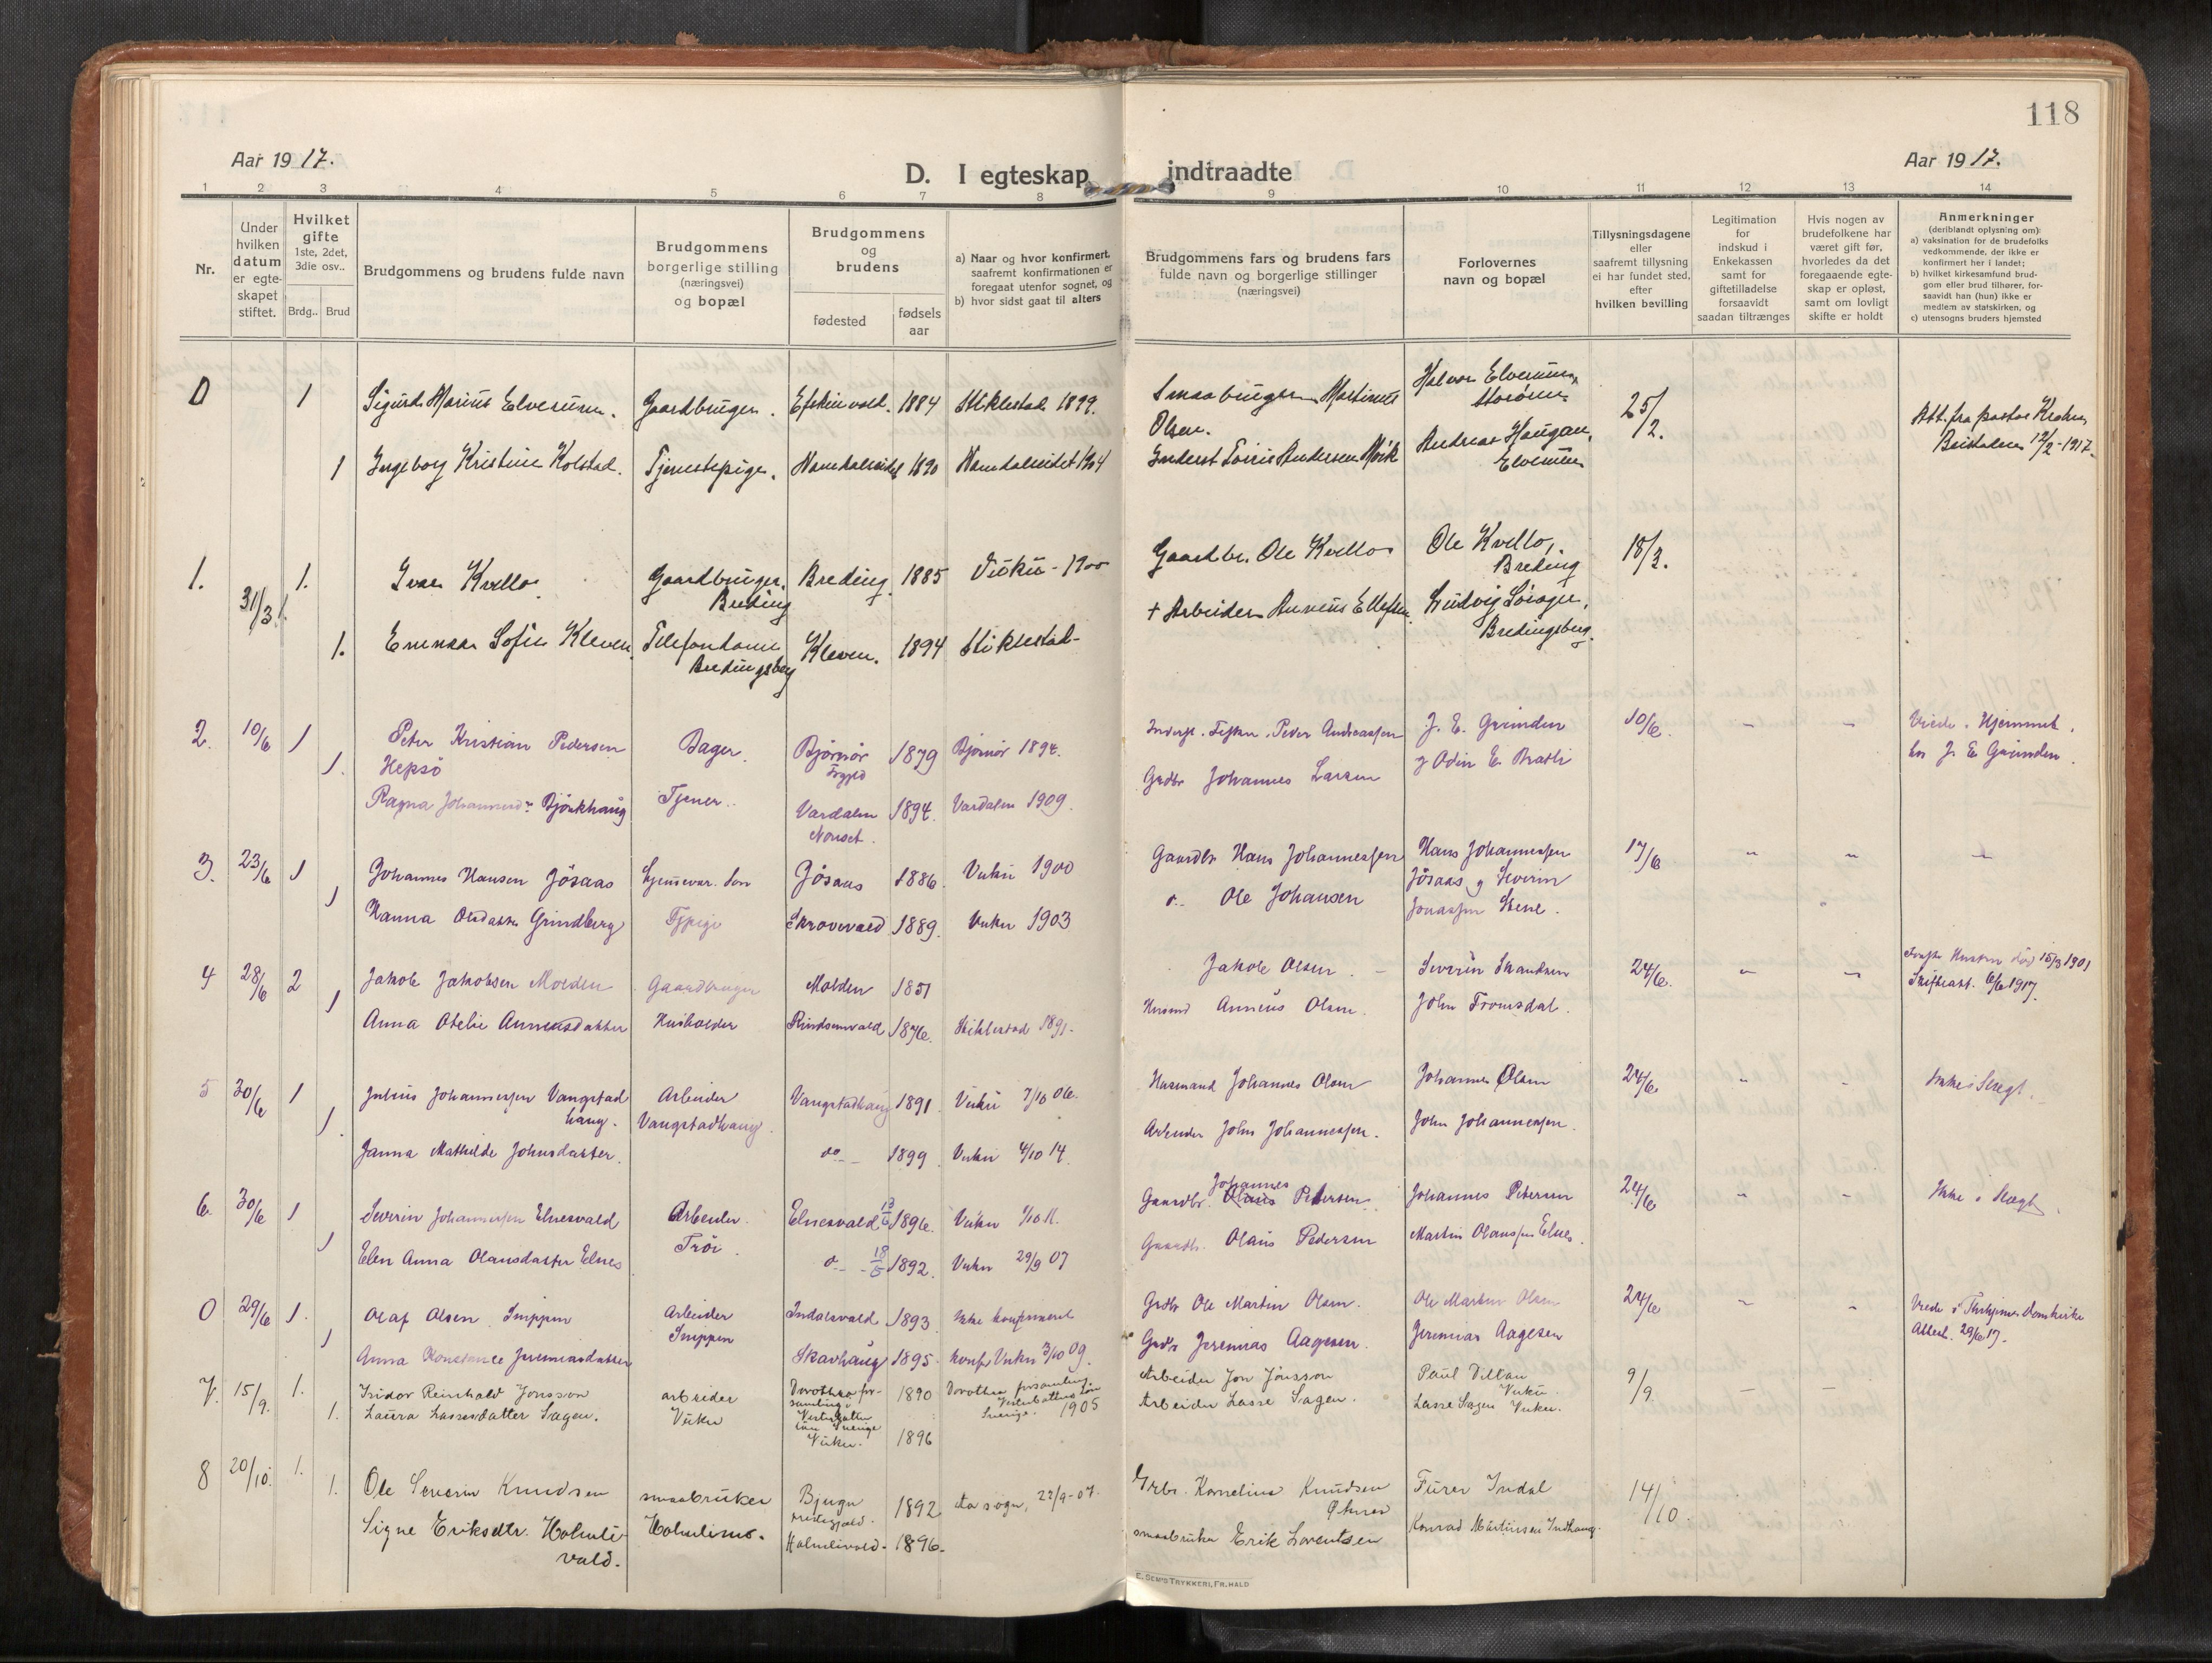 118
Aar 1917.
D. I egteskap indtraadte
Aar 1917.
1 2 3 4 5 6 7 8 9 10 11 12 13 14
Nr.
Under hvilken datum er egteskapet stiftet.
Hvilket gifte 1ste, 2det, 3die osv..
Brdg.. Brud
Brudgommens og brudens fulde navn
Brudgommens borgerlige stilling (næringsvei) og bopæl
Brudgommens og brudens
fødested
fødsels aar
a) Naar og hvor konfirmert, saafremt konfirmationen er foregaat utenfor sognet, og
b) hvor sidst gaat til alters
Brudgommens fars og brudens fars fulde navn og borgerlige stillinger (næringsvei)
Forlovernes navn og bopæl
Tillysningsdagene eller saafremt tillysning ei har fundet sted, efter hvilken bevilling
Legitimation for indskud i Enkekassen samt for giftetilladelse forsaavidt saadan tiltrænges
Hvis nogen av brudefolkene har været gift før, hvorledes da det foregaaende egteskap er opløst, samt om lovligt skifte er holdt
Anmerkninger (deriblandt oplysning om):
a) vaksination for de brudefolks vedkommende, der ikke er konfirmert her i landet;
b) hvilket kirkesamfund brudgom eller brud tilhører, forsaavidt han (hun) ikke er medlem av statskirken, og
c) utensogns bruders hjemsted
0 1 Sigurd Marius Elverum. Gaardbruger. 1884 Stiklestad 1899. Martinus Olsen. Halvor Elverum, 25/2. Att. fra pastor
1 Ingeborg Kristine Kolstad. Tjenestepige. Namdalseidet 1890 Namdalseidet 1904 Andersen Andreas Haugan, 12/2-1917.
1. 31/3. 1. Ivar Kvello Gaardbruger, Breding Breding 1885 Vuku - 1900 Gaardbr. Ole Kvello Ole Kvello, Breding 18/3.
1. Sofie Kleven Telefondame Bredingsberg Kleven. 1894 Stiklestad + Arbeider Ludvig Bredingsberg.
2. 10/6 1 Peter Kristian Pedersen Hepsö Bager. Bjørnør 1879 Bjørnør 1894. Peder Andreassen J. E. Grinden 10/6. - - Viede i Hjemmet
1. Ragna Bjørkhaug Tjener. Værdalen 1894. Værdalen 1909. Grdbr Johannes Larsen og Odin E. Bratli hos J. E. Grinden.
3. 23/6 1 Johannes Hansen Jösaas Jösaas 1886. Vuku 1900 Gaardbr Hans Johannessen Hans Johannessen Jösaas og Severin 17/6 - - -
1 Hanna Olsdatter Grindberg Tjpige 1889. Vuku 1903 Ole Johansen Stene.
4 28/6 2 Jakob Jakobsen Molden Gaardbruger Molden 1851 Jakob Olsen. - Severin 24/6. - - død 15/3 1901
1 Anna Otelie Anneusdatter Husholder 1876. Stiklestad 1891. Anneus Olsen. John Tromsdal. 6/6 1917.
5 30/6 1 Julius Johannessen Vangstadhaug. Arbeider Vangstadhaug. Vangstadhaug 1891. Vuku 7/10 06. Husmand Johannes Olsen Johannes Olsen 24/6 - - Ikke i Slegt.
1. Janna Mathilde Johnsdatter. do 1899 Vuku 4/10 14. Arbeider John Johannessen. John Johannessen.
6. 30/6 1 Severin Johannessen Elnesvald Arbeider. Elnesvald 1896. Vuku 1/10 11. Gaardbr. Johannes Petersen Johannes Petersen 24/6 - - Ikke i Slegt
1 Elen Anna Olausdatter Elnes 1892. Vuku 29/9 07 Gaardb. Olaus Pedersen Martin Olaussen Elnes.
0 29/6 1. Olaf Olsen Snippen Arbeider Snippen Indalsvald 1893 Ikke konfirmert Grdbr Ole Martin Olsen. Ole Martin Olsen 24/6 - - Viede i Domkirke
1 Anna Konstance Jeremiasdatter Skavhaug 1895. konf Vuku 3/10 09. Jeremias Aagesen. Jeremias Aagesen Attest. 29/6 17.
7. 15/9. 1. Isidor Reinhold Jonsson arbeider Vuku Dorothea forsamling Sverige 1890 Dorothea forsamling Sverige. 1905 Arbeider Jon Jonsson Paul Vuku 9/9. - -
1. Laura Lassesdatter Sagen. Vuku. 1896 Arbeider Lasse Sagen. Lasse Sagen Vuku.
8 20/10. 1. Ole Severin Knudsen smaabruker Bjugn prestegjeld. 1892 22/9-07. Kornelius Knudsen Indal 14/10.
1. Signe Eriksdtr. Holmlivald. Holmlimo. Holmlivald. 1896. smaabruker Erik Lorentsen Konrad Martinsen Indhaug.
E. SEM'S TRYKKERI, FR.HALD